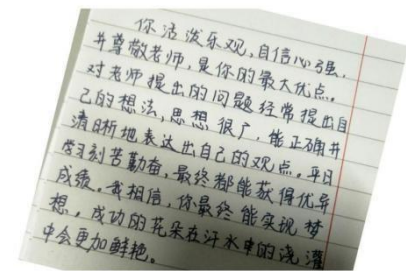 你活泼乐观,自信心强,
并尊敬老师,是你的最大优点。
对老师提出的问题经常提出自
己的想法,思想很广,能正确并
清晰地表达出自己的观点。平日
学习刻苦勤奋,最终都能获得优异
成绩。我相信,你最终能实现梦
想。成功的花朵在汗水中的浇灌
中会更加鲜艳。